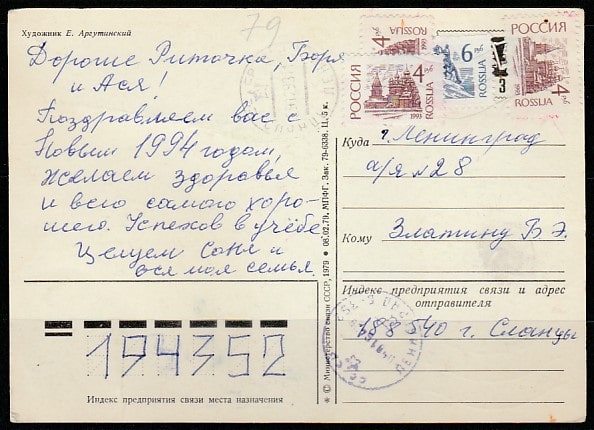 Художник Е. Аргутинский
79
Дорогие Риточка, Боря
и Ася!
Поздравляем вас с
Новым 1994 годом,
желаем здоровья
и всего самого хоро-
шего. Успехов в учёбе.
Целуем Соня и
вся моя семья.
194352
Индекс предприятия связи места назначения
* © Министерство связи СССР, 1979 * 08.02.79. МПФГ. Зак. 79-6338. Ц. 5 к.
РОССИЯ 4 руб ROSSIJA 1993
4 ROSSIJA 1993
6 руб ROSSIJA
3
РОССИЯ 4 руб ROSSIJA
Куда г. Ленинград
а/я № 28
Кому Златину В. Э.
Индекс предприятия связи и адрес
отправителя
188540 г. Сланцы